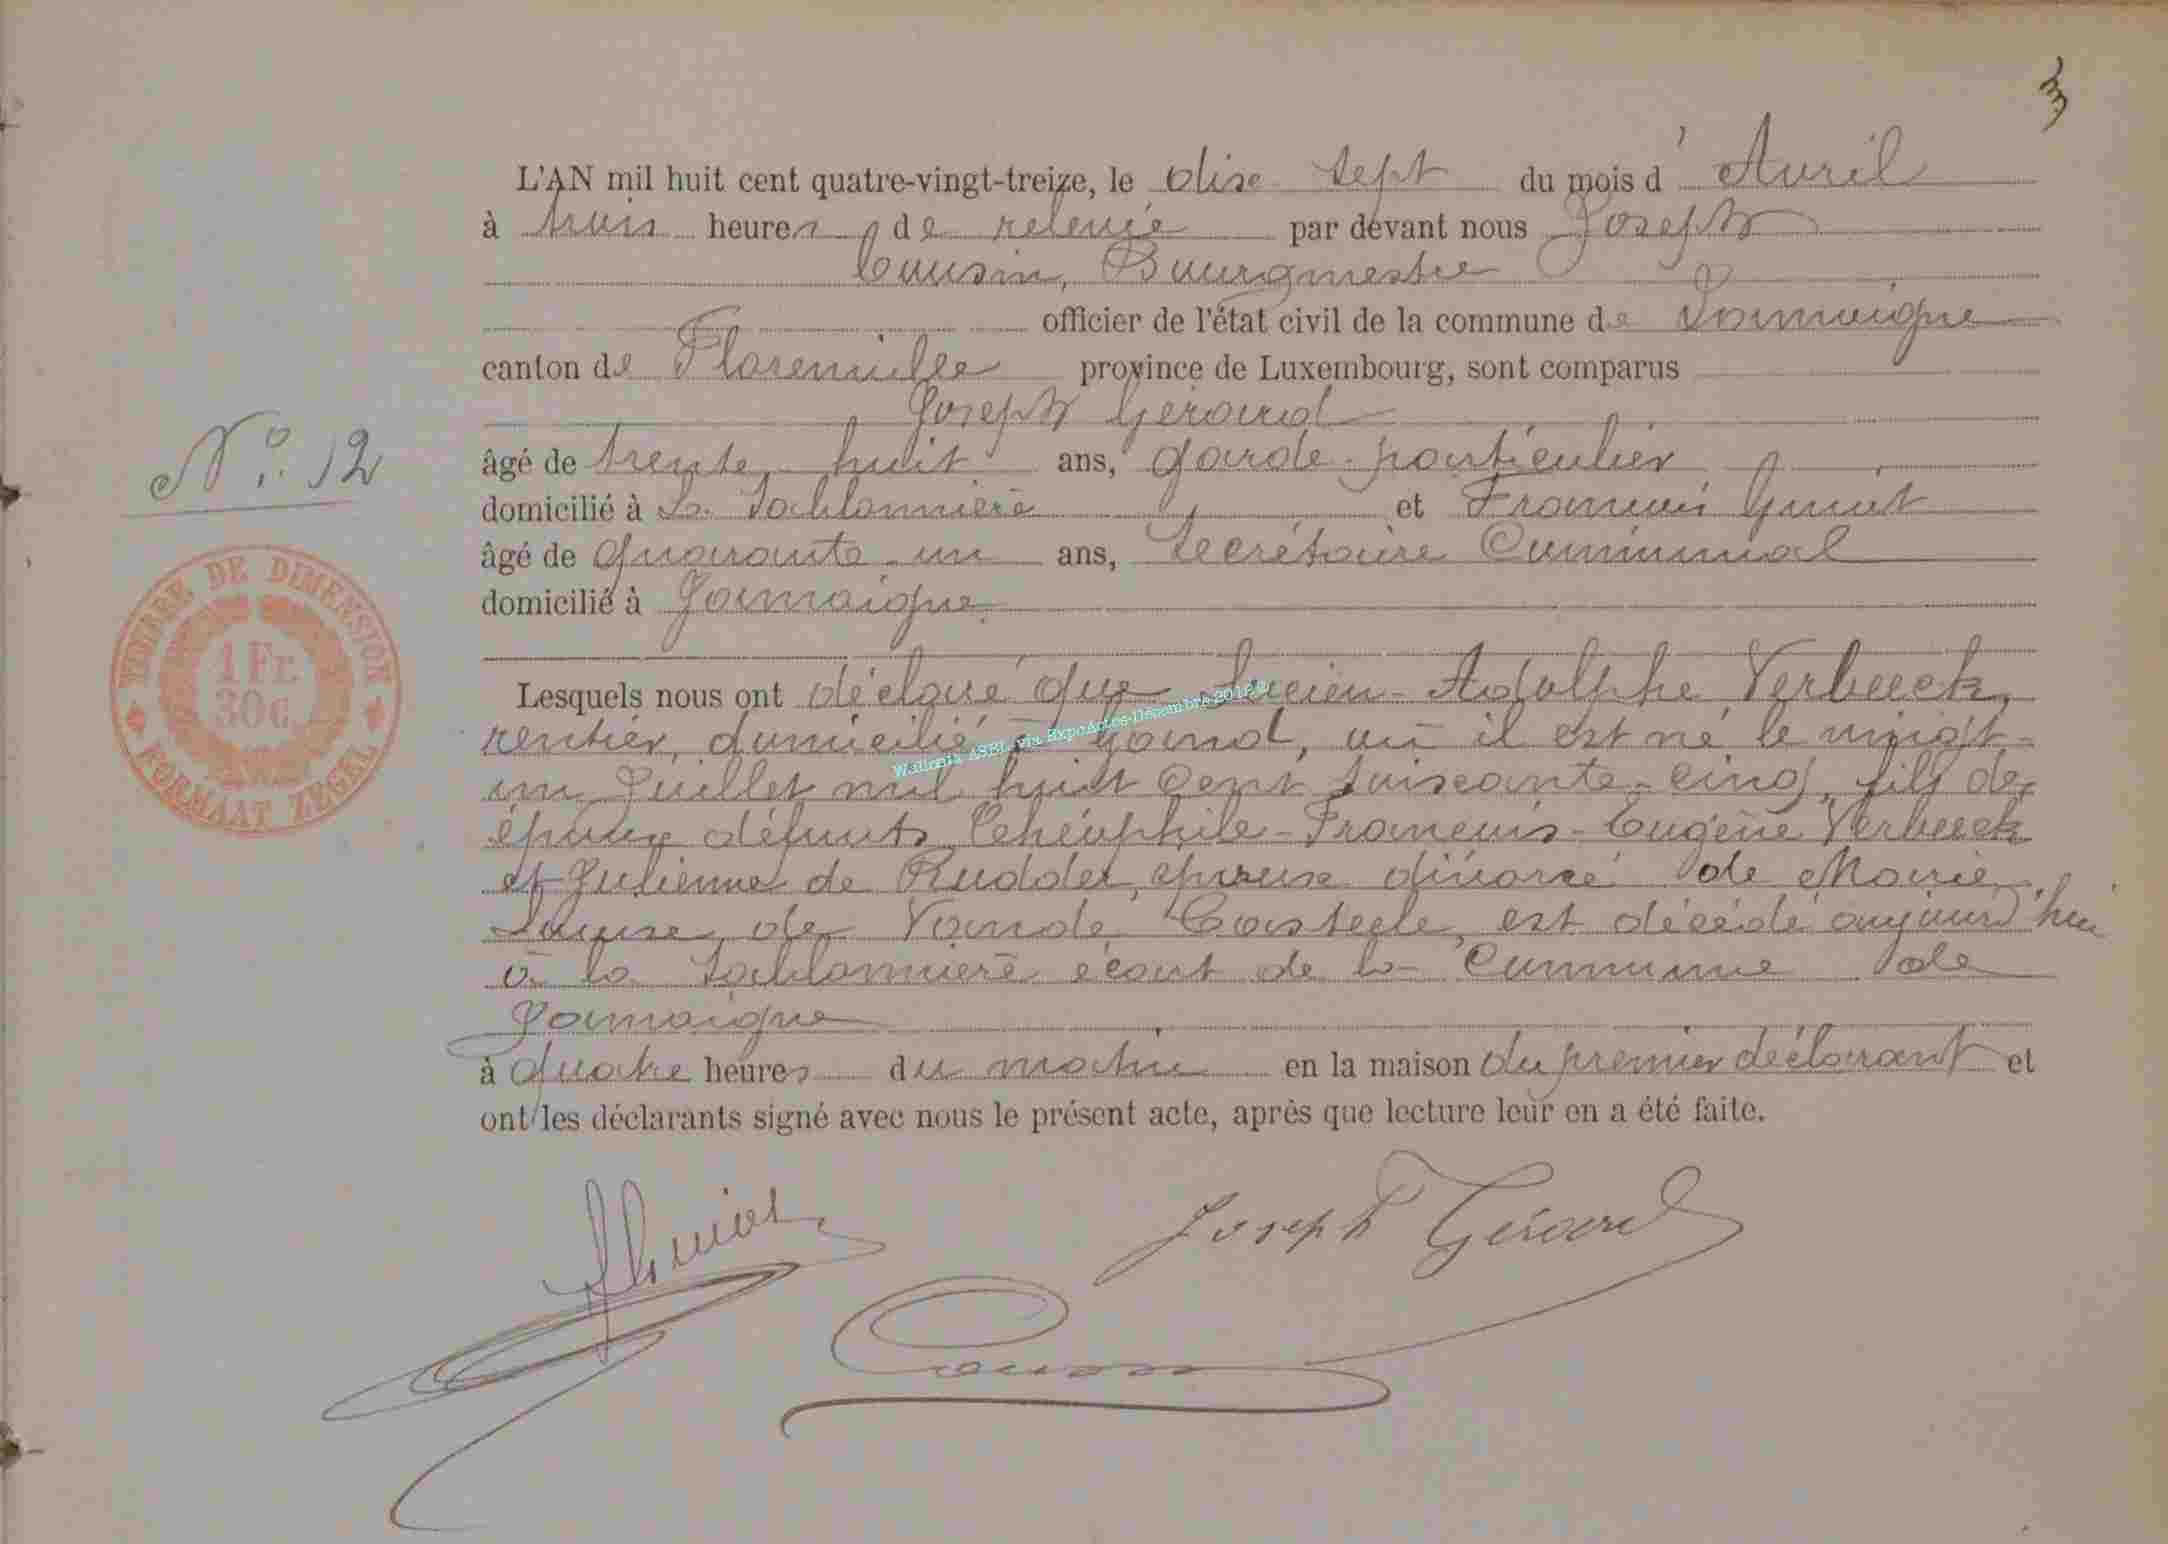 3
L'AN mil huit cent quatre-vingt-treize, le dix sept du mois d'Avril
à trois heures de relevée par devant nous Joseph
Cousin, Bourgmestre
officier de l'état civil de la commune de Jamoigne
canton de Florenville province de Luxembourg, sont comparus
Joseph Gérard
N° 12
âgé de trente huit ans, garde particulier
domicilié à La Sablonnière et François Guiot
âgé de quarante un ans, Secrétaire Communal
domicilié à Jamoigne
TIMBRE DE DIMENSION
1 Fr.
30c
FORMAAT ZEGEL
Lesquels nous ont déclaré que Lucien-Adolphe Verbeeck,
rentier, domicilié à Gand, où il est né le vingt-
un Juillet mil huit cent soixante-cinq, fils des
époux défunts Théophile-François-Eugène Verbeeck
et Julienne de Ridder, époux divorcé de Marie
Louise de Vande Casteele, est décédé aujourd'hui
à la Sablonnière écart de la Commune de
Jamoigne
à quatre heures du matin en la maison du premier déclarant et
ont les déclarants signé avec nous le présent acte, après que lecture leur en a été faite.
Wallonia ASBL via ExpoActes-Décembre 2018
FGuiot
Joseph Gérard
Cousin